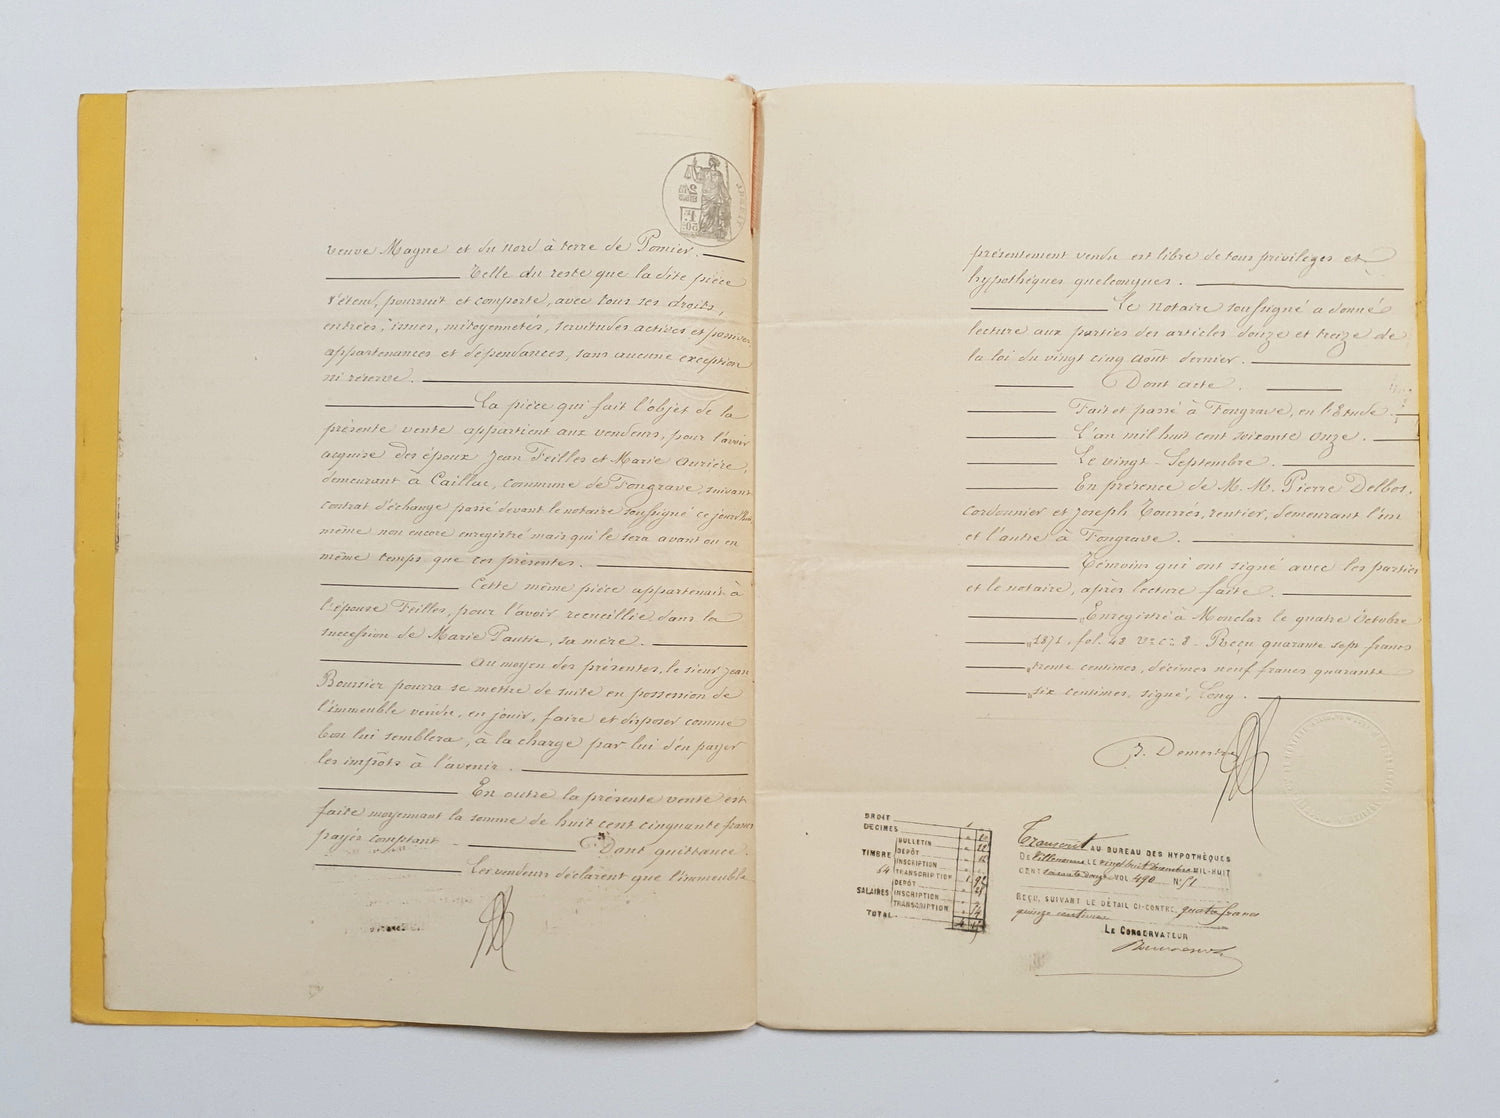 veuve Magne et du nord à terre de Pomier.
Telle du reste que la dite pièce
s'étend, poursuit et comporte, avec tous ses droits,
entrées, issues, mitoyennetés, servitudes actives et passives
appartenances et dépendances, sans aucune exception
ni réserve.
La pièce qui fait l'objet de la
présente vente appartient aux vendeurs, pour l'avoir
acquise des époux Jean Feilles et Marie Aurière,
demeurant à Caillac, commune de Fongrave, suivant
contrat d'échange passé devant le notaire soussigné ce jourd'hui
même non encore enregistré mais qui le sera avant ou en
même temps que ces présentes.
Cette même pièce appartenait à
l'épouse Feilles, pour l'avoir recueillie dans la
succession de Marie Pautie, sa mère.
Au moyen des présentes, le sieur Jean
Boussier pourra se mettre de suite en possession de
l'immeuble vendu, en jouir, faire et disposer comme
bon lui semblera, à la charge par lui d'en payer
les impôts à l'avenir.
En outre la présente vente est
faite moyennant la somme de huit cent cinquante francs
payés comptant Dont quittance.
Les vendeurs déclarent que l'immeuble
présentement vendu est libre de tous privilèges et
hypothèques quelconques.
Le notaire soussigné a donné
lecture aux parties des articles douze et treize de
la loi du vingt cinq Août dernier.
Dont acte.
Fait et passé à Fongrave, en l'Etude.
L'an mil huit cent soixante onze.
Le vingt-Septembre.
En présence de M. M. Pierre Delbos,
cordonnier et Joseph Tourrés, rentier, demeurant l'un
et l'autre à Fongrave.
Témoins qui ont signé avec les parties
et le notaire, après lecture faite.
Enregistré à Monclar le quatre Octobre
1871, fol. 48 Vo Co 8. Reçu quarante sept francs
trente centimes, décimes neuf francs quarante
six centimes, signé, Long.
DROIT
DECIMES
TIMBRE 64
BULLETIN
DEPÔT
INSCRIPTION
TRANSCRIPTION
SALAIRES
DEPÔT
INSCRIPTION
TRANSCRIPTION
TOTAL
Transcrit AU BUREAU DES HYPOTHÈQUES
DE Villeneuve LE vingt huit MIL-HUIT
CENT VOL 490 No 51
REÇU, SUIVANT LE DÉTAIL CI-CONTRE, quatre francs
quinze centimes
LE CONSERVATEUR